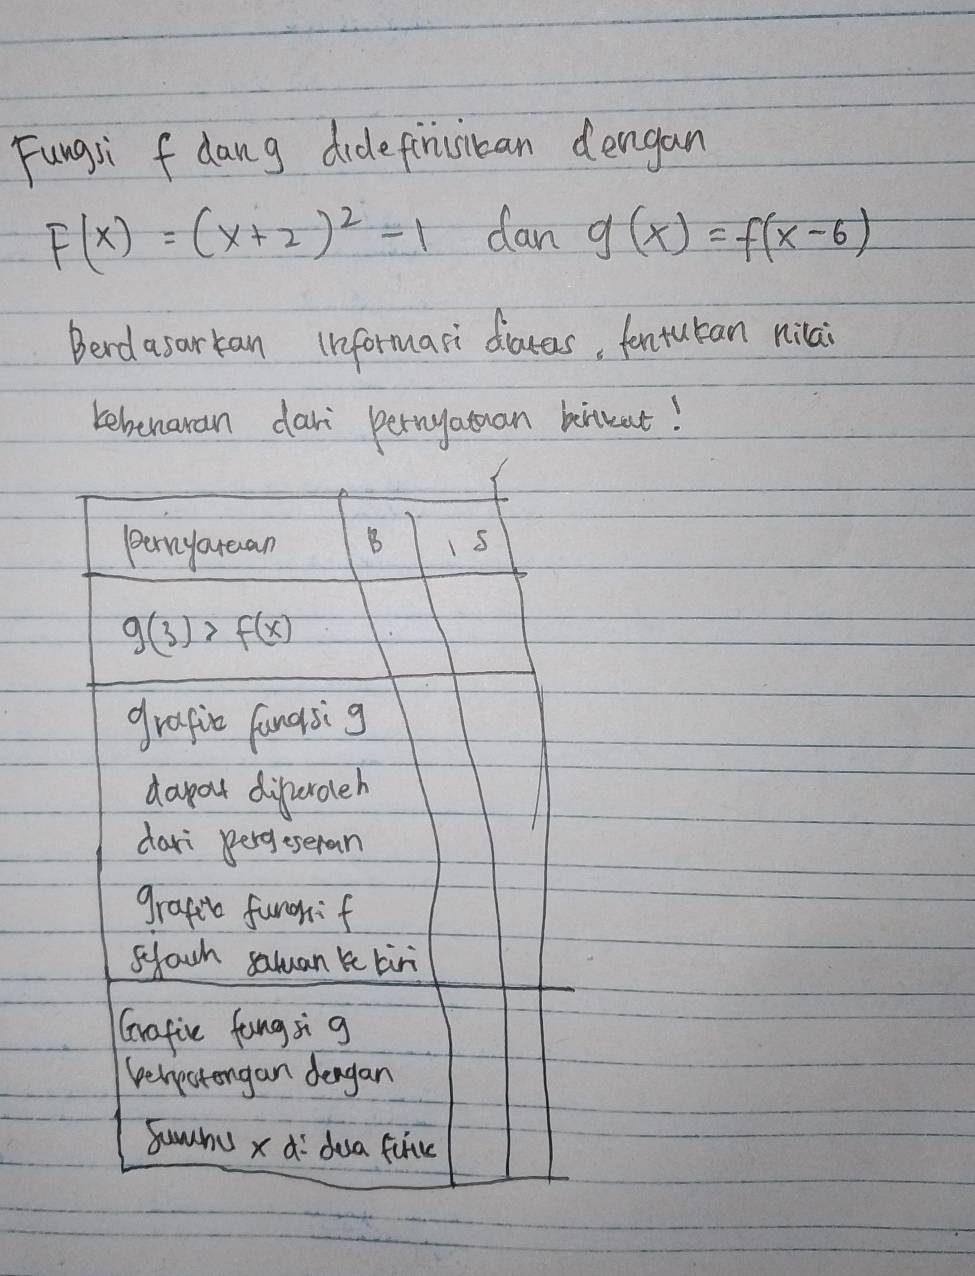 Fungsi f dan g didefinisikan dengan
F(x) = (x+2)² -1 dan g(x) = f(x-6)
Berdasarkan informasi diatas, tentukan nilai
kebenaran dari pernyataan berikut!
Pernyataan B S
g(3) > f(x)
grafik fungsi g
dapat diperoleh
dari pergeseran
grafik fungsi f
sejauh satuan ke kiri
Grafik fungsi g
berpotongan dengan
Sumbu x di dua titik